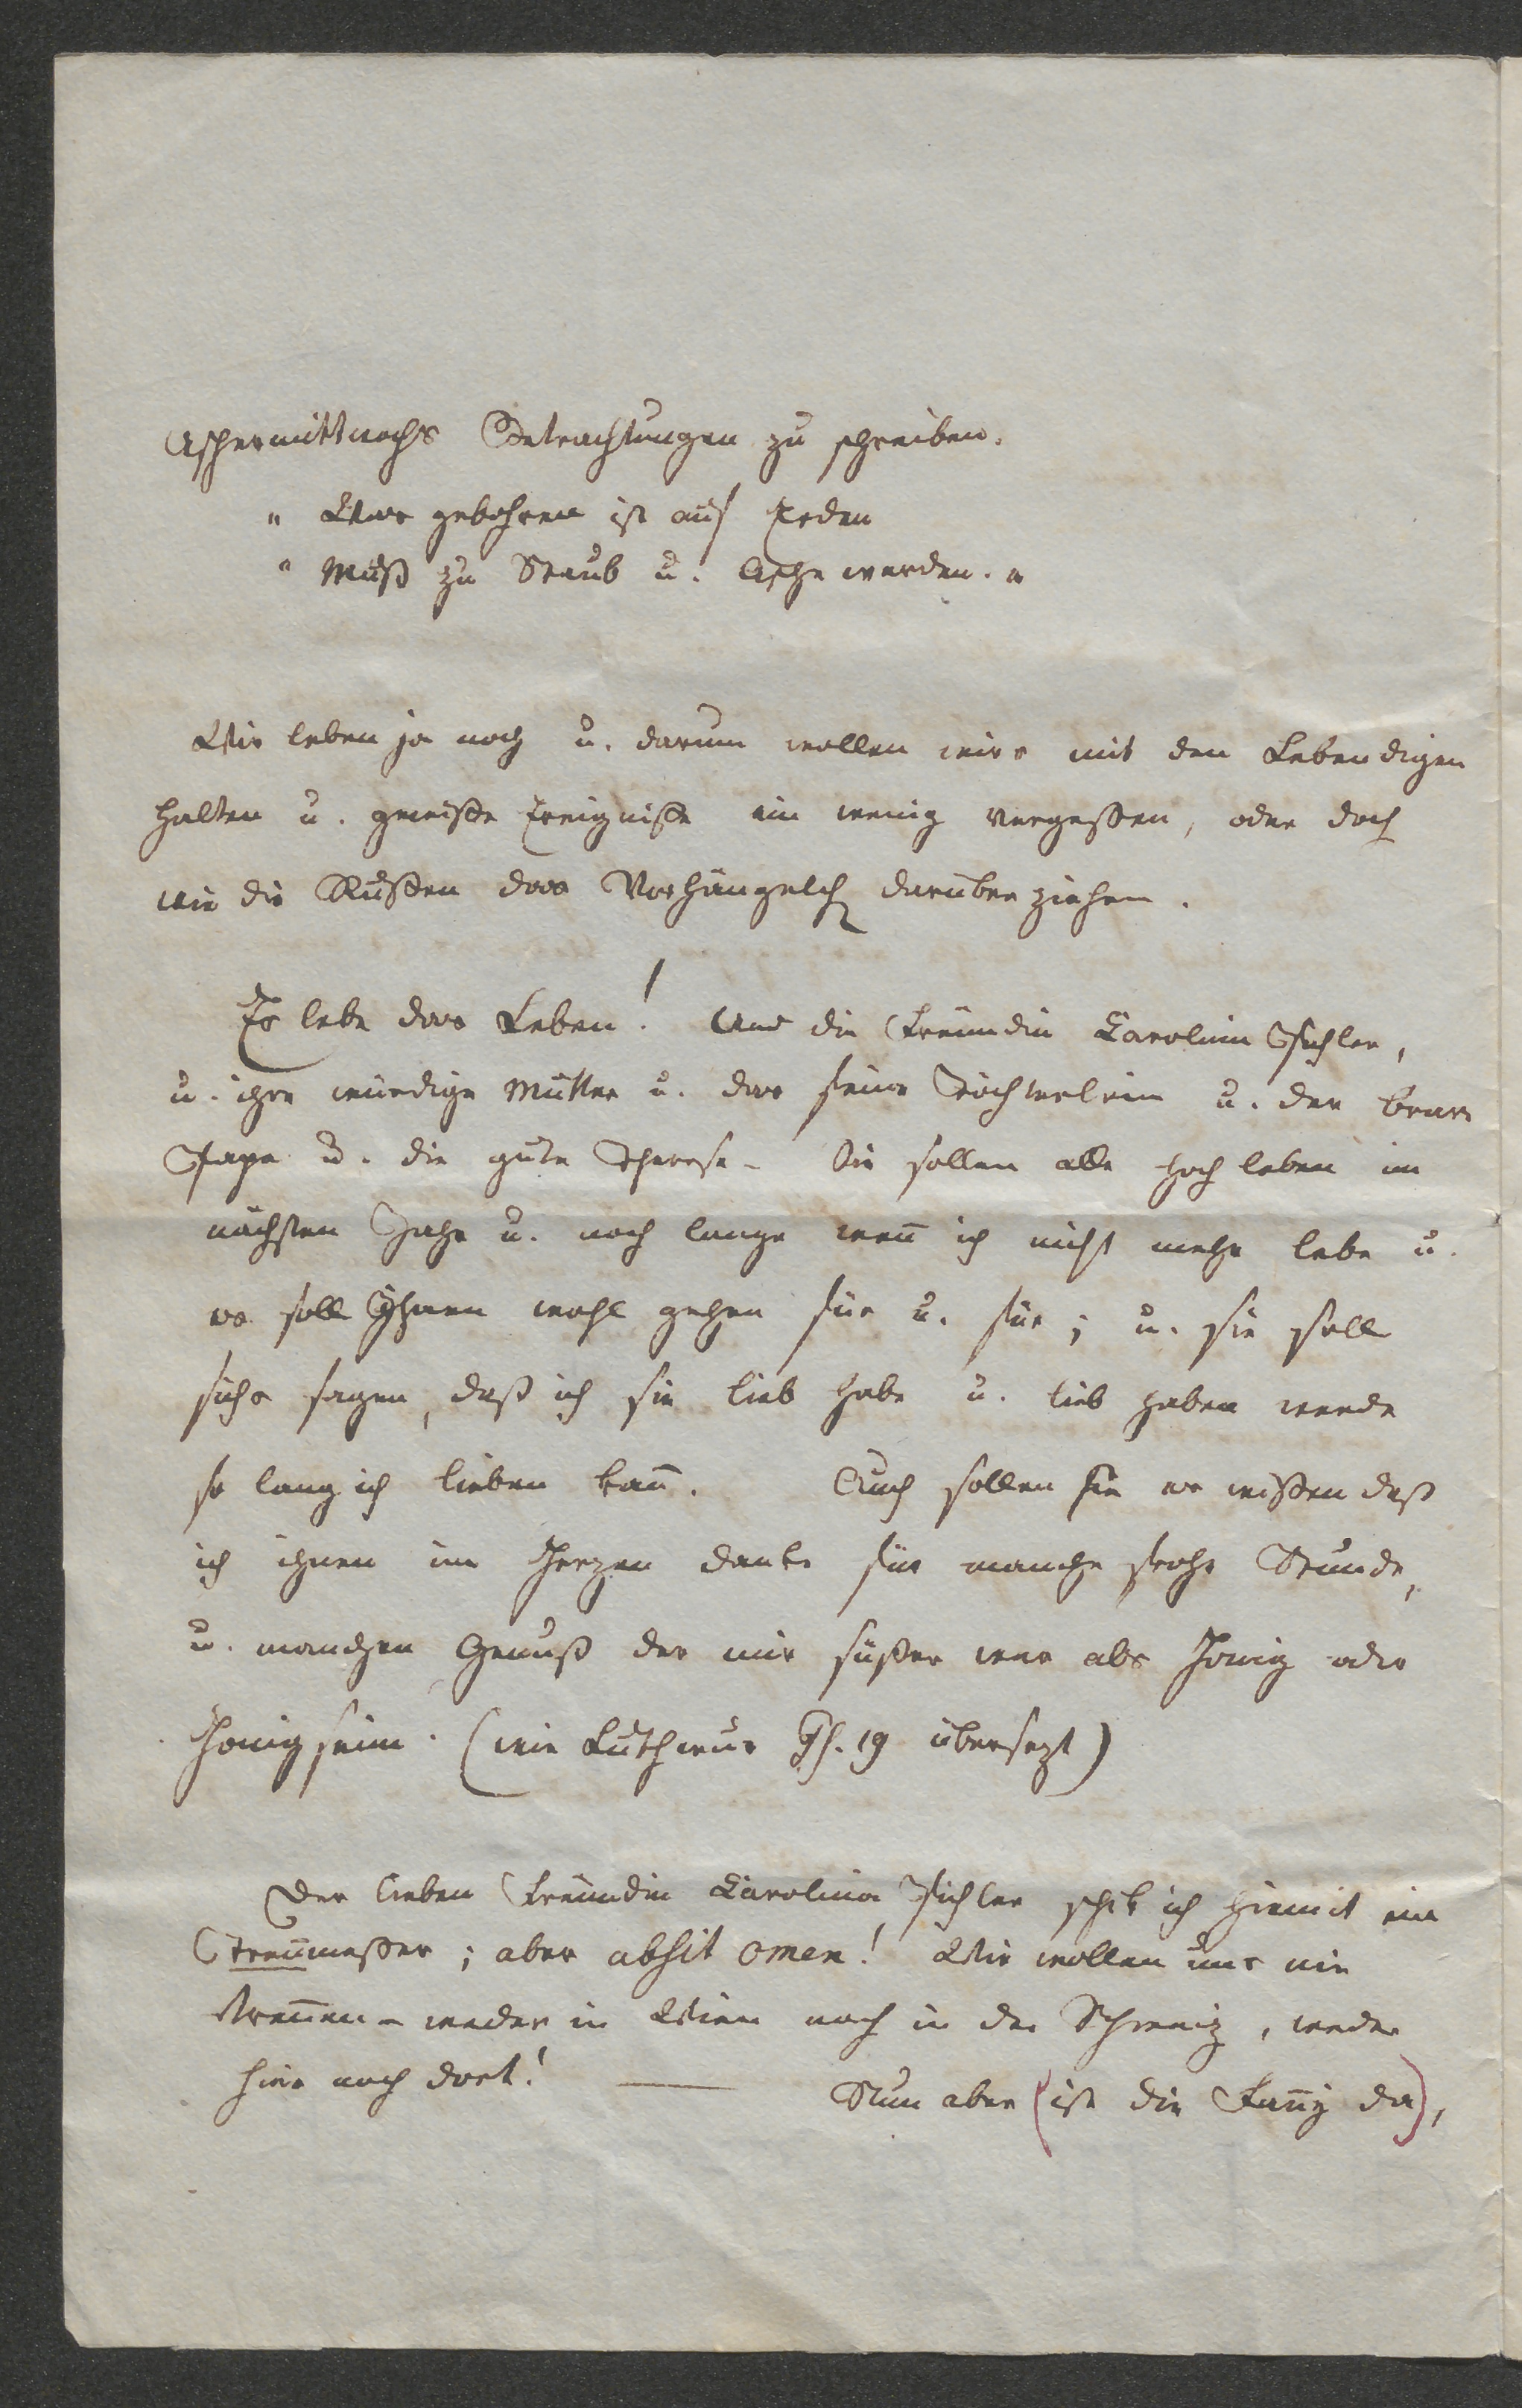 Aschermittwochs Betrachtungen zu schreiben.
„ Was gebohren ist auf Erden
„ Muß zu Staub u. Asche werden. „
Wir leben ja noch u. darum wollen wirs mit den Lebendigen
halten u. gewiße Ereigniße ein wenig vergeßen, oder doch
wie die Rußen das Vorhängelch darüber ziehen.
Es lebe das Leben! Und die Freundin Carolin Pichler,
u. ihre würdige Mutter u. das feine Töchterlein u. der brave
Papa u. die gute Therese – Sie sollen alle hoch leben im
nächsten Jahr u. noch lange wen̄ ich nicht mehr lebe u.
es soll Ihnen wohl gehen für u. für; u. sie soll
sichs sagen, daß ich sie lieb habe u. lieb haben werde
so lang ich lieben kan̄. Auch sollen sie es wißen daß
ich ihnen im Herzen danke für manche frohe Stunde,
u. manchen Genuß der mir süßer war als Honig oder
Honigseim. (wie Lutherus Ps. 19 übersezt)
Der lieben Freundin Carolina Pichler schik ich hiemit ein
Tren̄meßer; aber absit omen! Wir wollen uns nie
tren̄en – weder in Wien noch in der Schweiz, weder
hier noch dort! — Nun aber (ist die Fan̄y da),